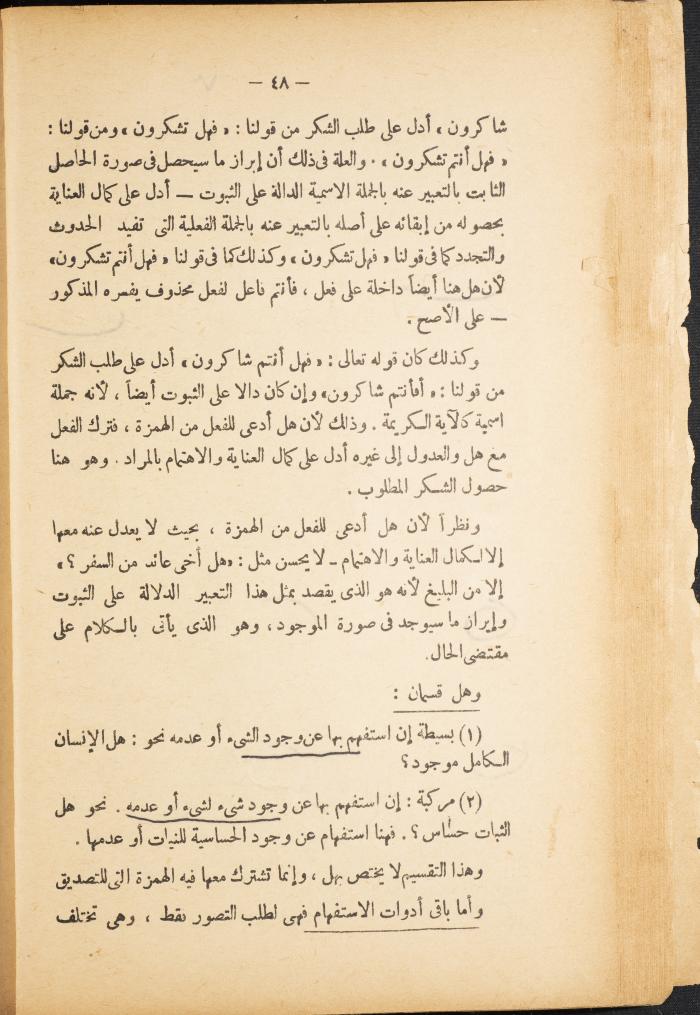 — ٤٨ —
شاكرون » أدل على طلب الشكر من قولنا : « فهل تشكرون » ومن قولنا :
« فهل أنتم تشكرون » . والعلة فى ذلك أن إبراز ما سيحصل فى صورة الحاصل
الثابت بالتعبير عنه بالجملة الاسمية الدالة على الثبوت — أدل على كمال العناية
بحصوله من إبقائه على أصله بالتعبير عنه بالجملة الفعلية التى تفيد الحدوث
والتجدد كما فى قولنا « فهل تشكرون » وكذلك كما فى قولنا « فهل أنتم تشكرون »
لأن هل هنا أيضاً داخلة على فعل ، فأنتم فاعل لفعل محذوف يفسره المذكور
— على الأصح .
وكذلك كان قوله تعالى : « فهل أنتم شاكرون » أدل على طلب الشكر
من قولنا : « أفأنتم شاكرون » وإن كان دالا على الثبوت أيضاً ، لأنه جملة
اسمية كالآية الكريمة . وذلك لأن هل أدعى للفعل من الهمزة ، فترك الفعل
مع هل والعدول إلى غيره أدل على كمال العناية والاهتمام بالمراد . وهو هنا
حصول الشكر المطلوب .
ونظراً لأن هل أدعى للفعل من الهمزة ، بحيث لا يعدل عنه معها
إلا لكمال العناية والاهتمام – لا يحسن مثل : « هل أخى عائد من السفر ؟ »
إلا من البليغ لأنه هو الذى يقصد بمثل هذا التعبير الدلالة على الثبوت
وإبراز ما سيوجد فى صورة الموجود ، وهو الذى يأتى بالكلام على
مقتضى الحال.
وهل قسمان :
(١) بسيطة إن استفهم بها عن وجود الشىء أو عدمه نحو : هل الإنسان
الكامل موجود ؟
(٢) مركبة : إن استفهم بها عن وجود شىء لشىء أو عدمه . نحو هل
النبات حساس ؟ . فهنا استفهام عن وجود الحساسية للنبات أو عدمها .
وهذا التقسيم لا يختص بهل ، وإنما تشترك معها فيه الهمزة التى للتصديق
وأما باقى أدوات الاستفهام فهى لطلب التصور فقط ، وهى تختلف